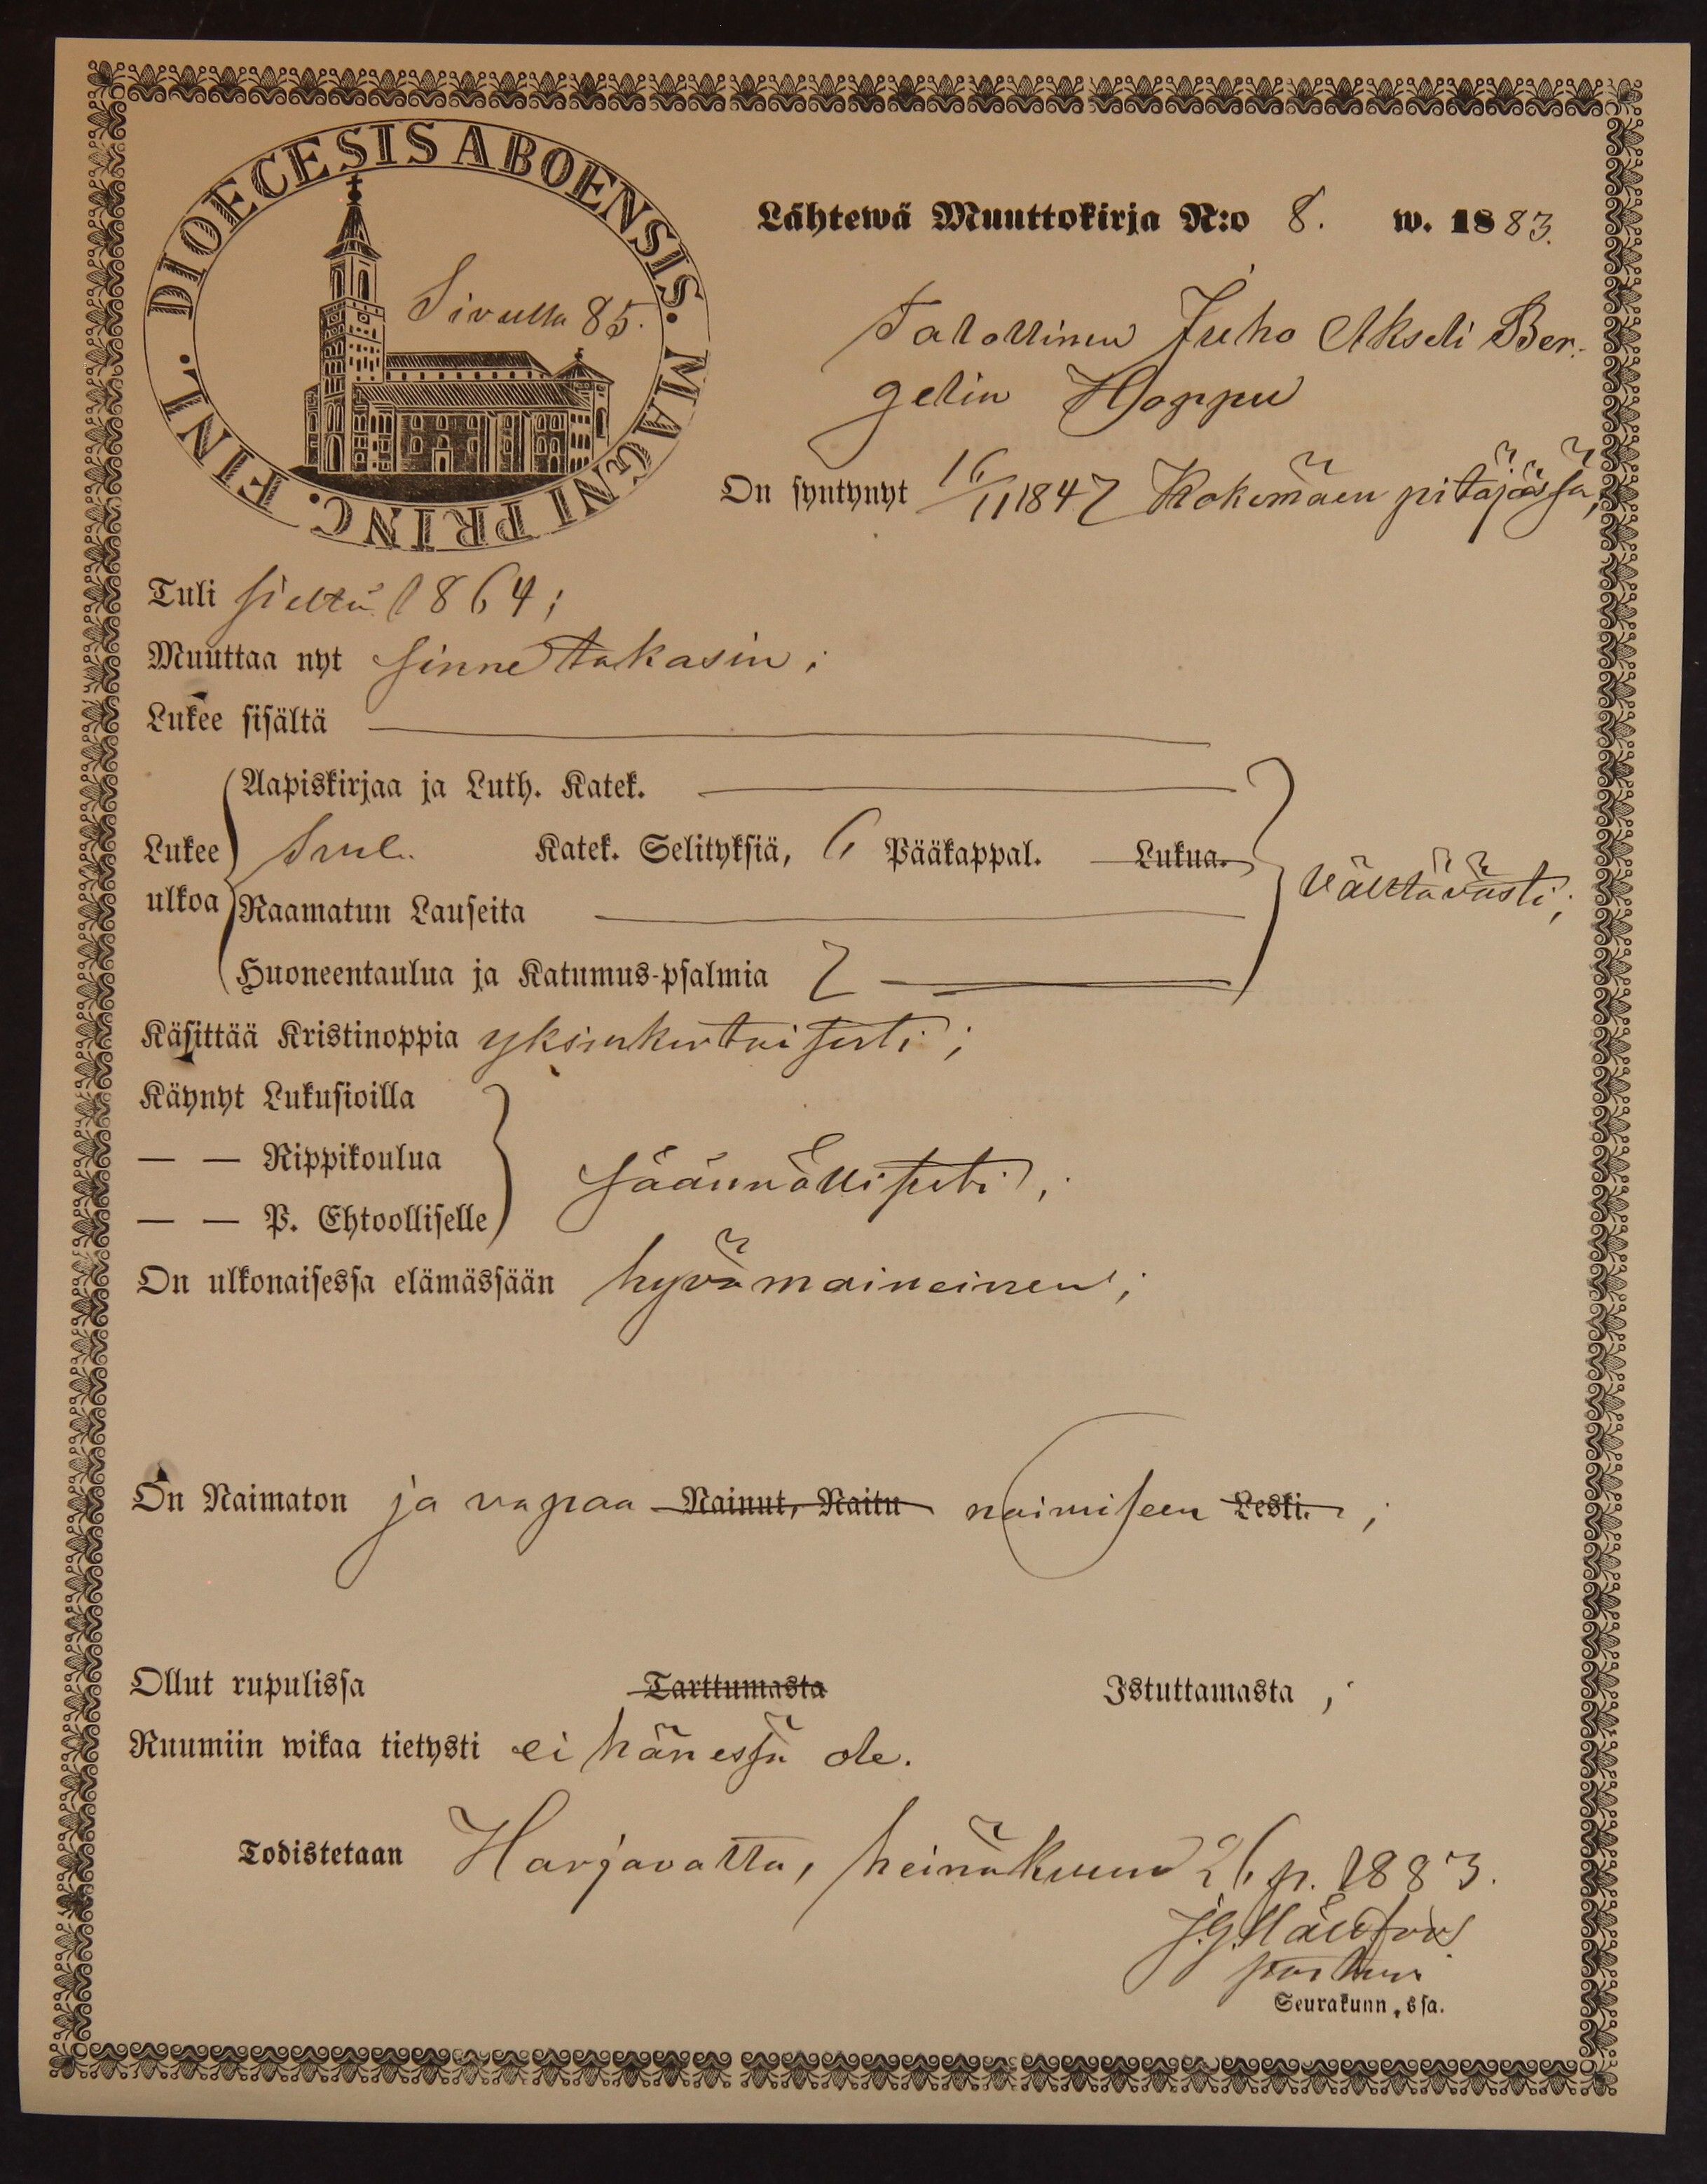 DIOECESIS ABOENSIS. MAGNI PRINC. FINL.
Sivulla 85.
Lähtewä Muuttokirja N:o 8. w. 1883.
Talollinen Juho Akseli Ber-
gelin Hoppu
On syntynyt 16/11 1847 Kokemäen pitäjässä,
Tuli sieltä 1864;
Muuttaa nyt sinne takasin;
Lukee sisältä
Aapiskirjaa ja Luth. Katek.
Lukee ulkoa Katek. Selityksiä, 6 Pääkappal. Lukua.
välttävästi;
Raamatun Lauseita
Huoneentaulua ja Katumus-psalmia
Käsittää Kristinoppia yksinkertaisesti;
Käynyt Lukusioilla
— — Rippikoulua
säännöllisesti,
— — P. Ehtoolliselle
On ulkonaisessa elämässään hyvämaineinen;
On Naimaton ja vapaa Nainut, Naitu naimiseen Leski. ;
Ollut rupulissa Tarttumasta Istuttamasta ,
Ruumiin wikaa tietysti ei hänessä ole.
Todistetaan Harjavalta, heinäkuun 26 p. 1883.
J.G.
pastori
Seurakunn „ssa.